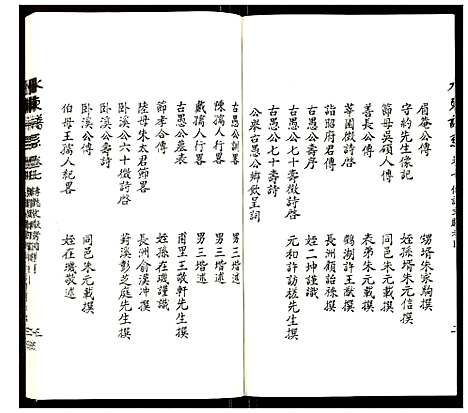 眉菴公傳 甥壻朱家駒撰
守約先生像記 姪孫壻朱元信撰
節母吳碩人傳 同邑朱元載撰
善長公傳 表弟朱元載撰
莘圃徵詩啓 鶴湖許王猷撰
詒昭府君傳 長洲顧詒祿撰
古愚公壽序 姪二坤謹識
古愚公七十徵詩啓 元和許訪槎先生撰
古愚公七十壽詩
公舉古愚公鄉飲呈詞
古愚公訓畧 男三楷述
陳孺人行畧 男三楷述
戴孺人行畧 男三楷述
古愚公墓表 甫里王敬軒先生撰
節孝傳 姪孫在璣謹識
陸母朱太君節畧 長洲俞漢冲撰
卧溪公六十徵詩啓 葑溪彭芝庭先生撰
卧溪公壽詩
卧溪公傳 同邑朱元載撰
伯母王孺人紀畧 姪在璣敬述